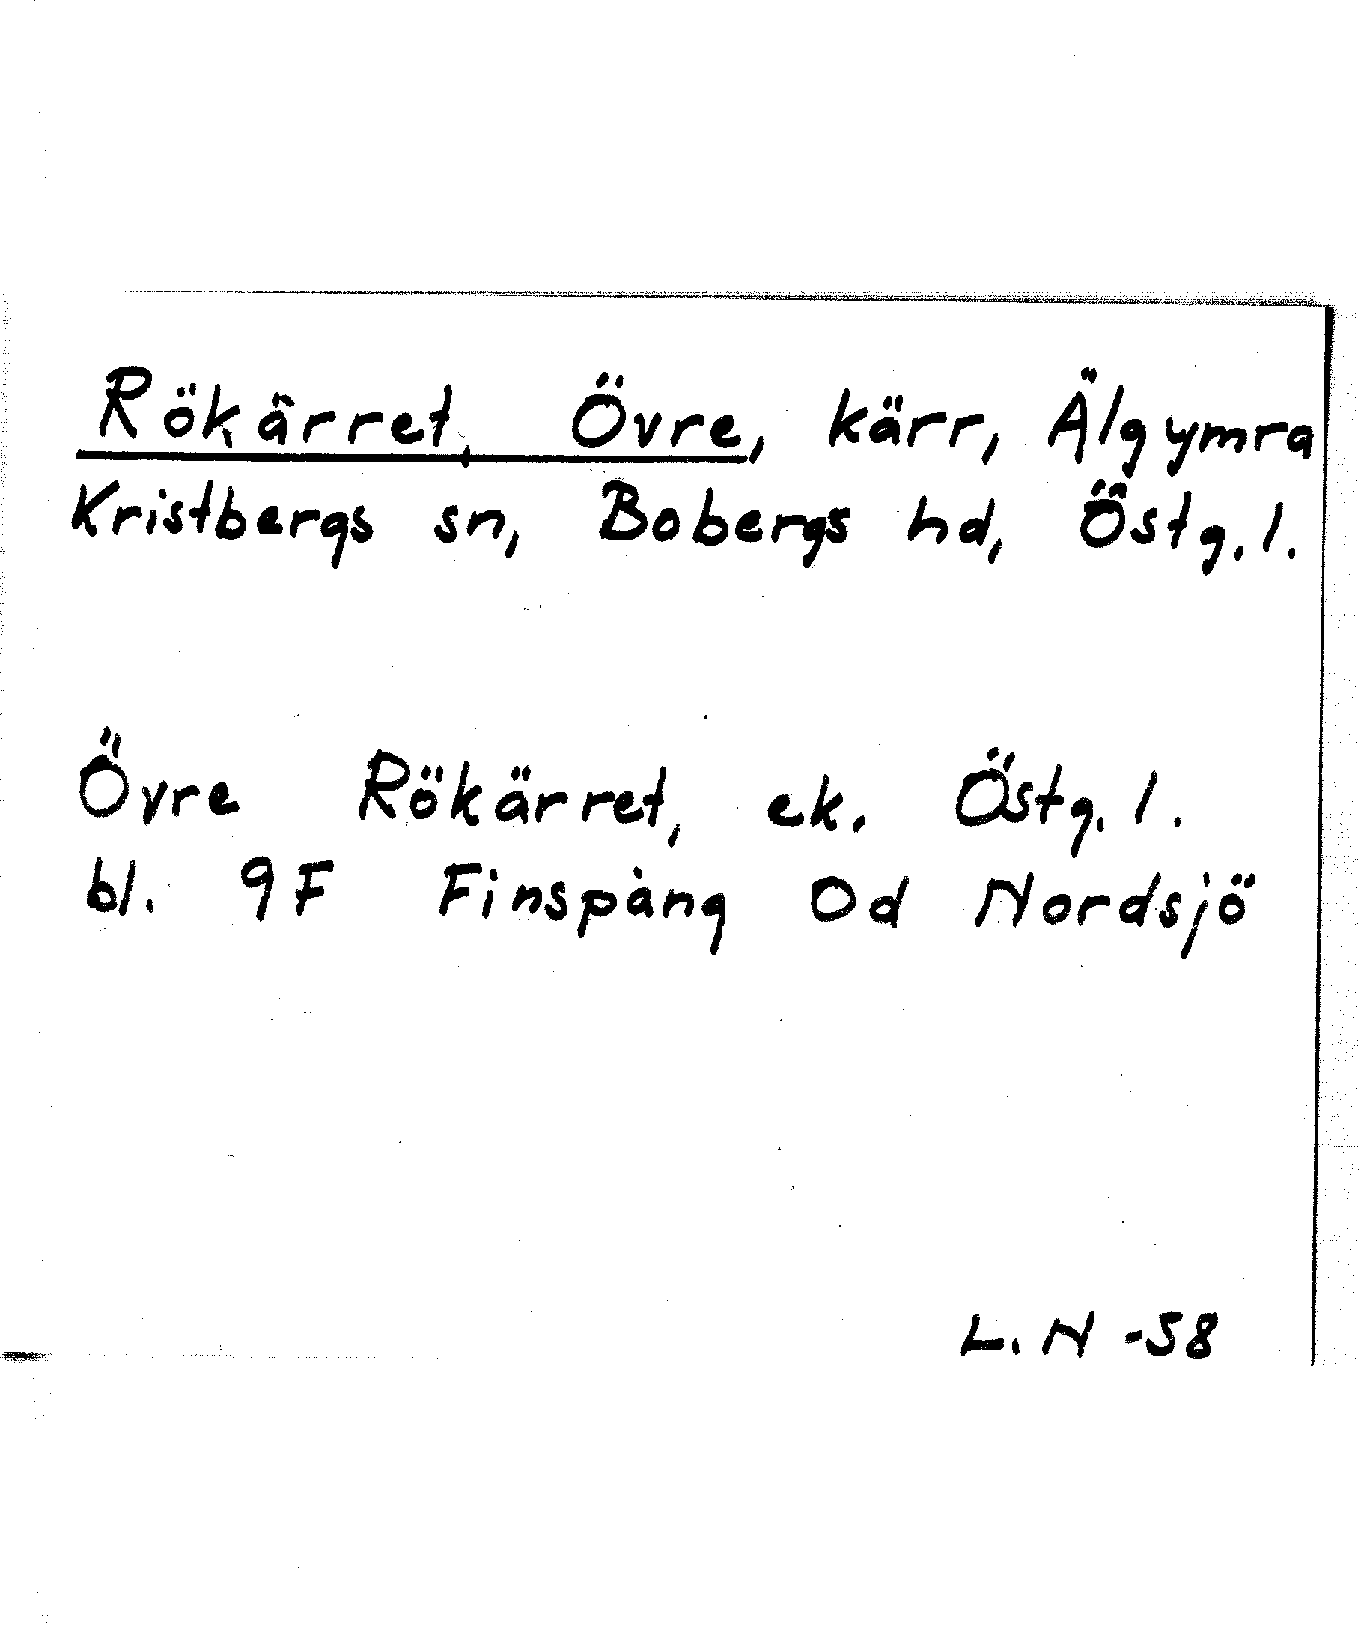 Rökärret, Övre, kärr, Älgymra
Kristbergs sn, Bobergs hd, Östg. l.
Övre Rökärret, ek. Östg. l.
bl. 9F Finspång 0d Nordsjö
L. N -58